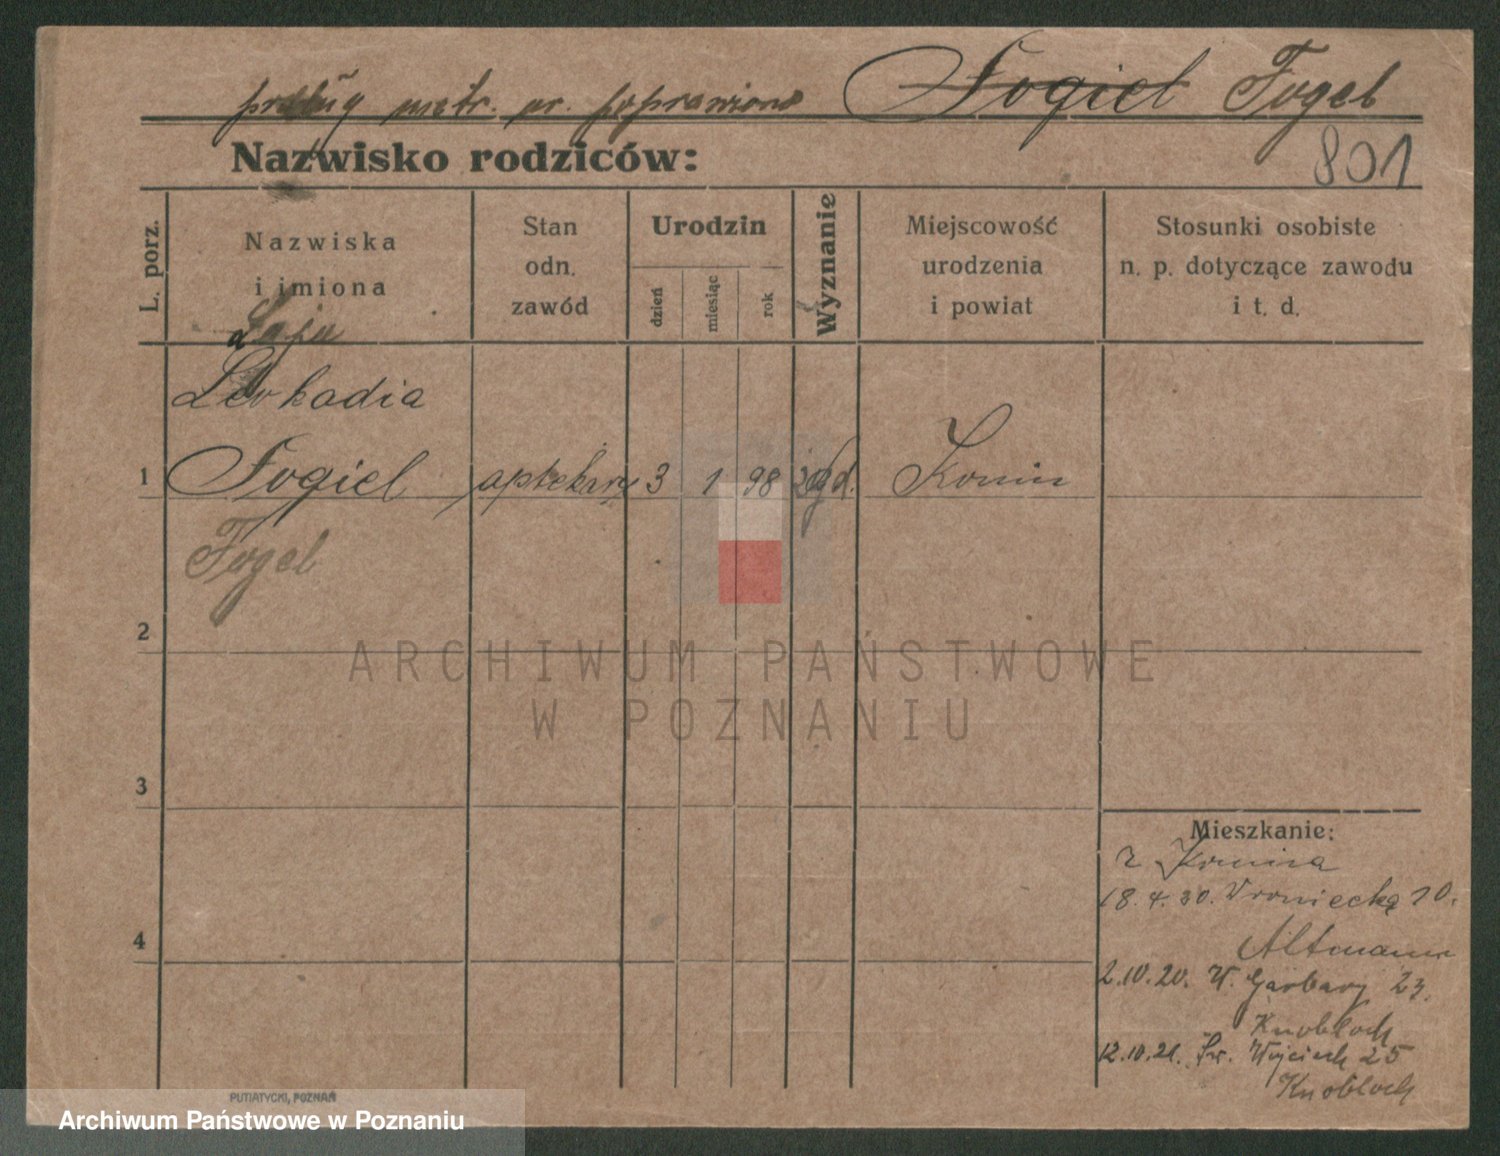 podług metr. ur. poprawiono Fogiel Fogel
Nazwisko rodziców:
801
L. porz.
Nazwiska
i imiona
Stan
odn.
zawód
Urodzin
dzień
miesiąc
rok
Wyznanie
Miejscowość
urodzenia
i powiat
Stosunki osobiste
n. p. dotyczące zawodu
i t. d.
Łaja
Leokadia
1 Fogiel aptekarz 3 1 98 Konin
Fogel
2
ARCHIWUM PAŃSTWOWE
W POZNANIU
3
Mieszkanie:
z Konina
18.4.20. Wroniecka 10.
4
Altmann
2.10.20. W. Garbary 23.
Knobloch
12.10.21. Św. Wojciech 25
Knobloch
PUTIATYCKI, POZNAŃ
Archiwum Państwowe w Poznaniu